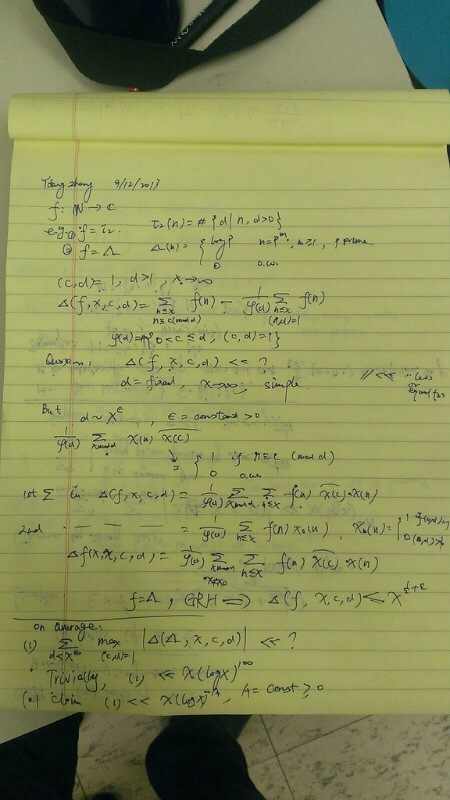 Yitang Zhang 9/12/2013
f: ℕ → ℂ
e.g. ① f = τ₂. τ₂(n) = # { d | n, d>0 }
② f = Λ Λ(n) = { log p n = pᵐ, m≥1, p prime
0 o.w.
(c,d) = 1, d>1, x→∞
Δ(f, x, c, d) = Σ_{n≤x, n≡c(mod d)} f(n) − 1/φ(d) Σ_{n≤x, (n,d)=1} f(n)
φ(d) = #{ 0<c≤d, (c,d)=1 }
Question: Δ(f, x, c, d) << ?
d = fixed, x→∞, simple
// << "less
But d ~ x^ε, ε = constant > 0
1/φ(d) Σ_{χ mod d} χ(n) χ̄(c)
= { 1 if n≡c (mod d)
0 o.w.
1st Σ in Δ(f, x, c, d) = 1/φ(d) Σ_{χ mod d} Σ_{n≤x} f(n) χ̄(c) · χ(n)
2nd — — = 1/φ(d) Σ_{n≤x} f(n) χ₀(n), χ₀(n) = { 1 if (n,d)=1
0 (n,d)>1
Δ(f, x, c, d) = 1/φ(d) Σ_{χ mod d, χ≠χ₀} Σ_{n≤x} f(n) χ̄(c) · χ(n)
f = Λ, GRH ⟹ Δ(f, x, c, d) << x^{½+ε}
on average:
(1) Σ_{d<x^Θ} max_{(c,d)=1} |Δ(Λ, x, c, d)| << ?
Trivially, (1) << x(log x)^{100}
claim (1) << x(log x)^{-A}, A = const > 0